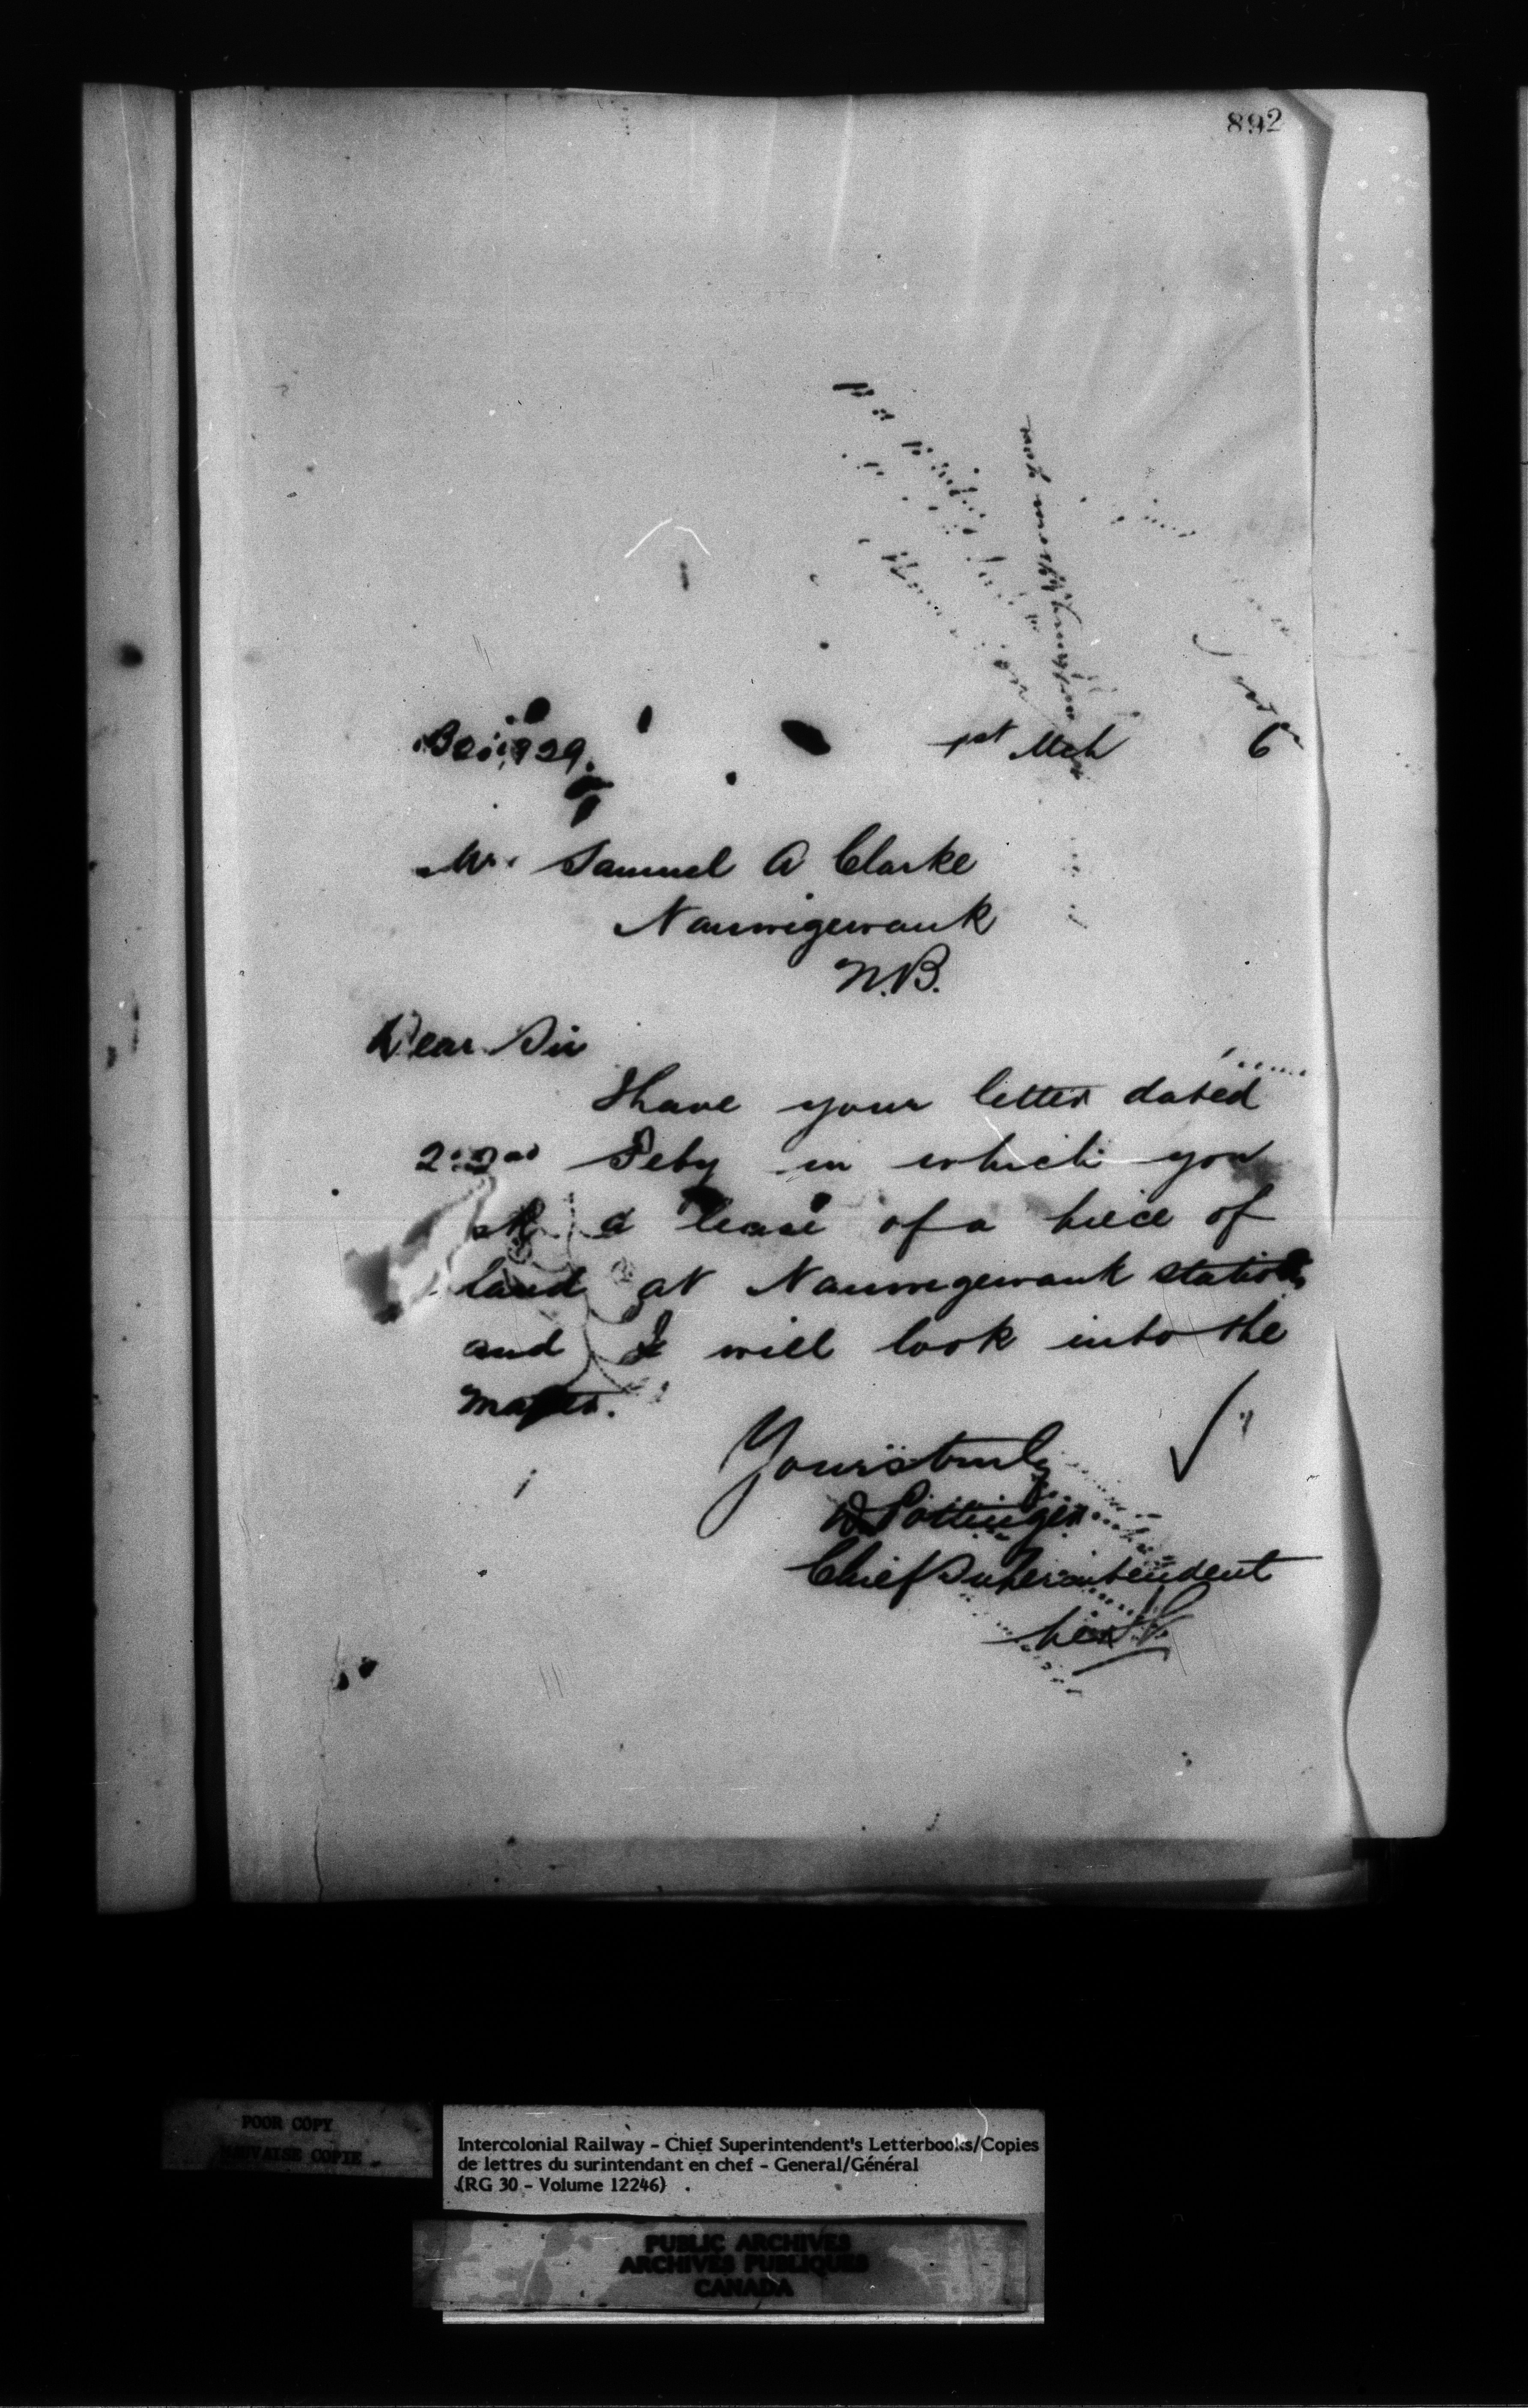 892
1st Mch 6
Mr. Samuel A Clarke
Nauwigewauk
N.B.
Dear Sir
I have your letter dated
22nd Feby in which you
ask a lease of a piece of
land at Nauwigewauk station
and I will look into the
matter.
Yours truly
D Pottinger
Chief Superintendent
POOR COPY
MAUVAISE COPIE
Intercolonial Railway - Chief Superintendent's Letterbooks/Copies
de lettres du surintendant en chef - General/Général
(RG 30 - Volume 12246)
PUBLIC ARCHIVES
ARCHIVES PUBLIQUES
CANADA